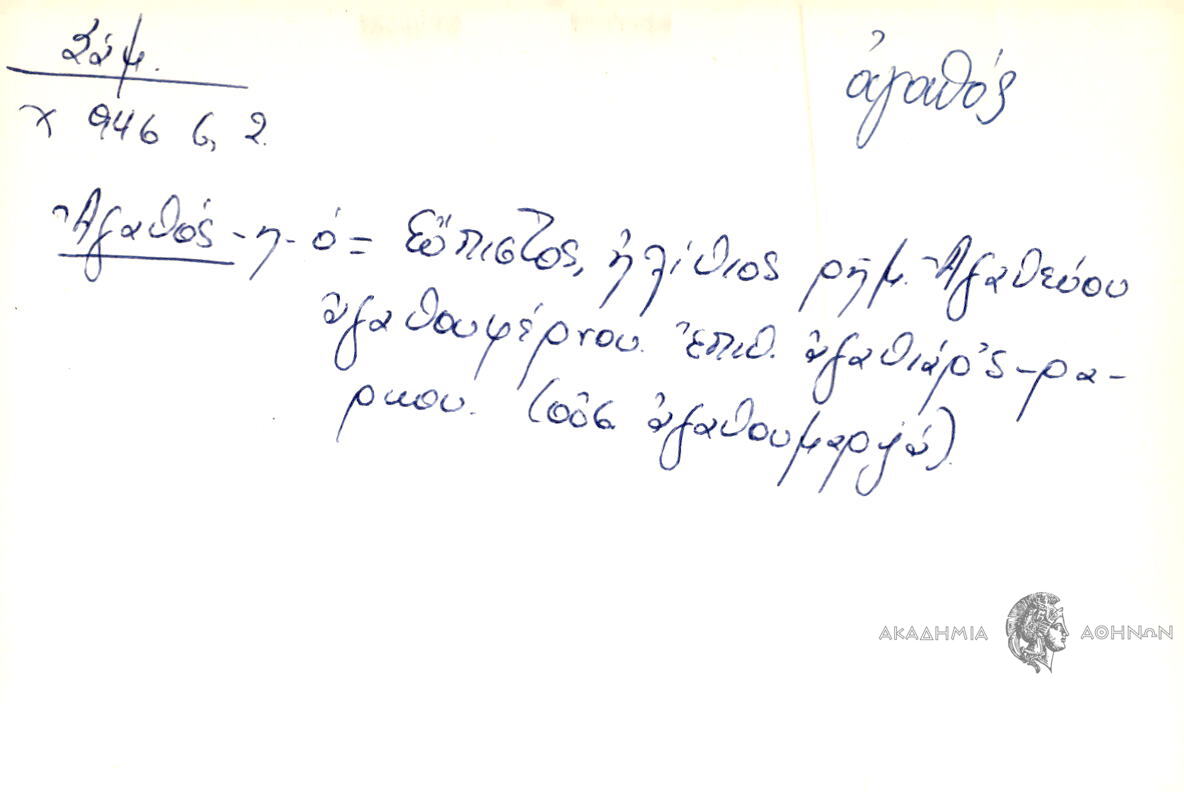 Σάμ.
ἀγαθός
χ 946 6, 2
Ἀγαθός -η- ό = Εὔπιστος, ἠλίθιος ρῆμ. Ἀγαθεύου
ἀγαθουφέρνου. ἐπιθ. ἀγαθιάρ'ς -ρα-
ρκου. (οὐσ. ἀγαθουμαρφά)
ΑΚΑΔΗΜΙΑ ΑΘΗΝΩΝ